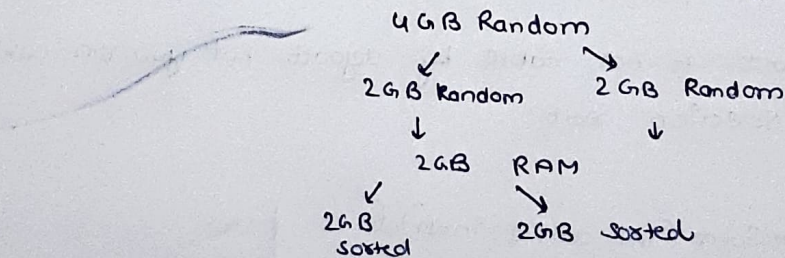 4 GB Random
2 GB Random 2 GB Random
2 GB RAM
2 GB 2 GB sorted
sorted